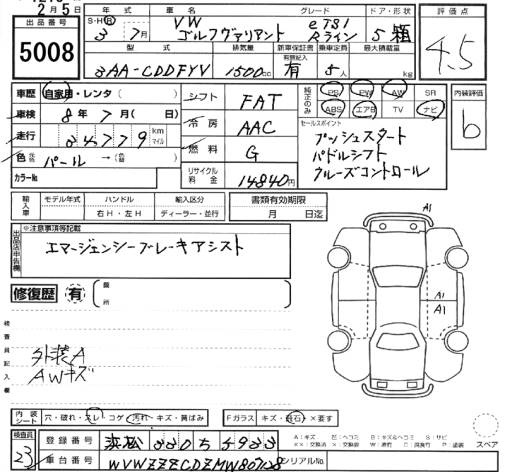 7月5日
出品番号 5008
年式 S・H・R 3 7月
車名 VW ゴルフヴァリアント
グレード eTSI Rライン
ドア・形状 5 箱
評価点 4.5
型式 3AA-CDDFYV
排気量 1500cc
新車保証書 有無記入 有
乗車定員 5人
最大積載量 kg
車歴 自家用・レンタ ( )
車検 8年7月( 日)
走行 km マイル
色 パール →
カラーNo.
シフト FAT
冷房 AAC
燃料 G
リサイクル料金 14840円
純正のみ PS PW AW SR
ABS エアB TV ナビ
セールスポイント
プッシュスタート
パドルシフト
クルーズコントロール
内装評価 b
輸入車 モデル年式 ハンドル 右H・左H 輸入区分 ディーラー・並行
書類有効期限 月 日迄
出品店申告欄 ※注意事項等記載
エマージェンシーブレーキアシスト
修復歴 有 箇所
検査員記入欄
外装A
AWキズ
A1
A1
内装シート 穴・破れ・スレ・コゲ・汚れ・キズ・黄ばみ
Fガラス キズ・飛石・×要す
スペア
検査員 23
登録番号 浜松
車台番号
シリアルNo.